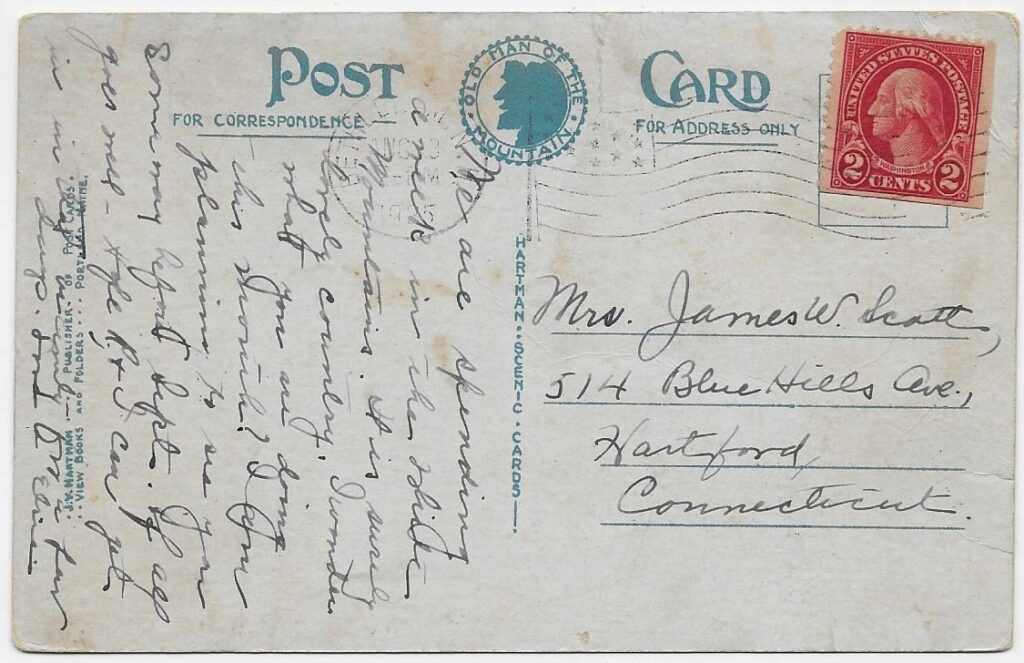 POST CARD
OLD MAN OF THE MOUNTAIN
FOR CORRESPONDENCE
FOR ADDRESS ONLY
UNITED STATES POSTAGE
WASHINGTON
2 CENTS 2
We are spending
a week in the White
Mountains. It is surely
lovely country. I wonder
what you are doing
this month? I am
planning to see you
Some way before Sept. If all
goes well - R & I can get
in
HARTMAN·SCENIC·CARDS
J.V. HARTMAN — PUBLISHER OF POST CARDS.
VIEW BOOKS AND FOLDERS ... PORTLAND MAINE.
Mrs. James W. Scott,
514 Blue Hills Ave.,
Hartford,
Connecticut.